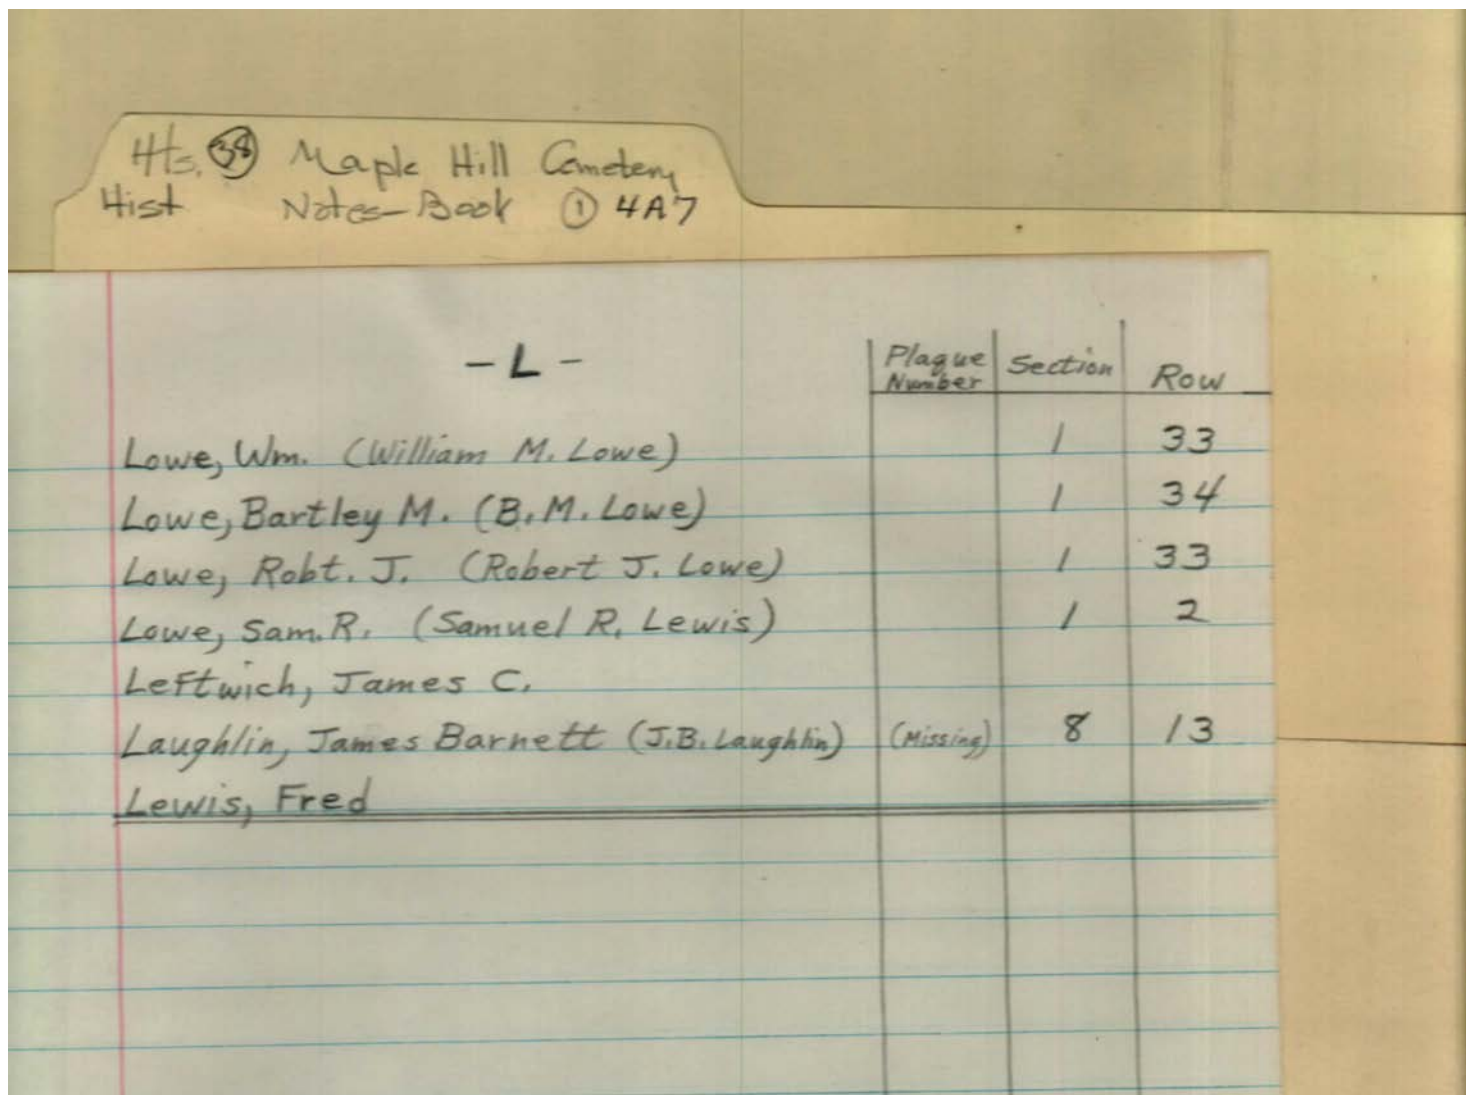 Hts. 38 Maple Hill Cemetery
Hist Notes-Book 1 4A7
- L -
Plaque Number Section Row
Lowe, Wm. (William M. Lowe) 1 33
Lowe, Bartley M. (B. M. Lowe) 1 34
Lowe, Robt. J. (Robert J. Lowe) 1 33
Lowe, Sam. R. (Samuel R. Lewis) 1 2
Leftwich, James C.
Laughlin, James Barnett (J.B. Laughlin) (Missing) 8 13
Lewis, Fred